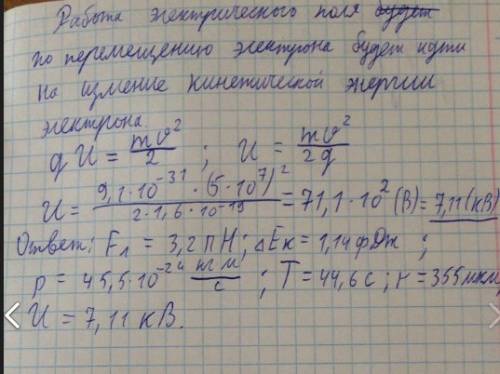 Работа электрического поля будет
по перемещению электрона будет идти
на измение кинетической энергии
электрона
qU = mv²/2 ; U = mv²/2q
U = 9,1·10⁻³¹·(5·10⁷)²/2·1,6·10⁻¹⁹ = 71,1·10² (В) = 7,11 (кВ)
Ответ: Fл = 3,2 пН; ΔEк = 1,14 фДж ;
p = 45,5·10⁻²⁴ кг м/с ; T = 44,6 с ; r = 355 мкм
U = 7,11 кВ.